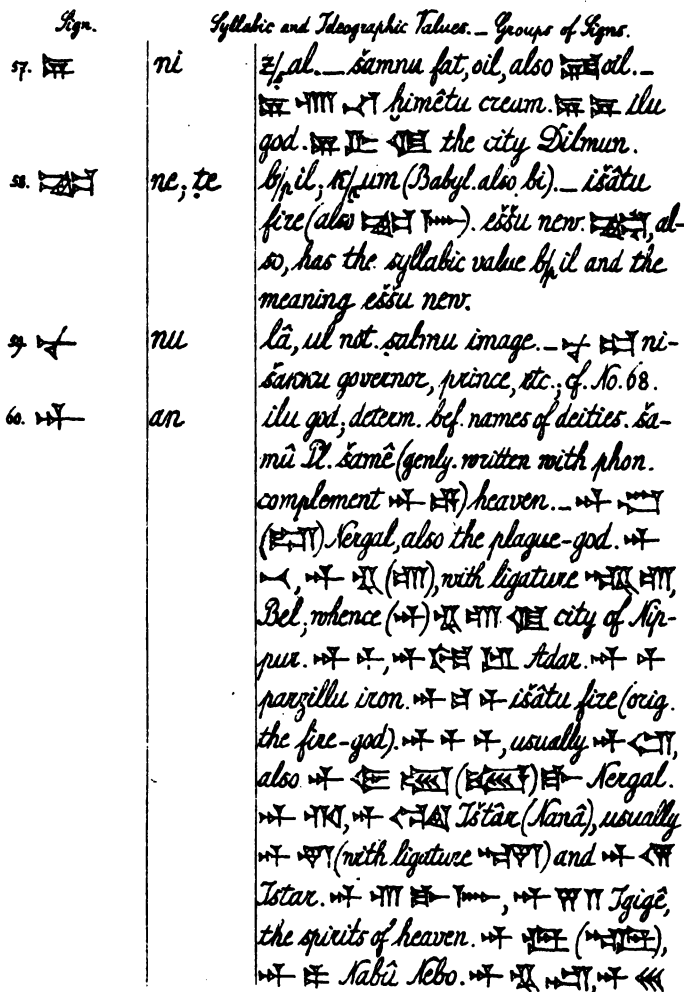 Sign. Syllabic and Ideographic Values. _ Groups of Signs.
57. 𒉌 ni z/ṣal. _ šamnu fat, oil, also oil. _
ḫimêtu cream. 𒉌 𒉌 ilu
god. 𒉌 𒌇 𒆠 the city Dilmun.
58. 𒉈 ne; ṭe b/pil; ḳ/ḳum (Babyl. also bi). _ išâtu
fire (also 𒉈 𒈨𒌍). eššu new. al-
so, has the syllabic value b/pil and the
meaning eššu new.
59. 𒉡 nu lâ, ul not. ṣalmu image. _ 𒉡 ni-
šakku governor, prince, etc.; cf. No. 68.
60. 𒀭 an ilu god; determ. bef. names of deities. ša-
mû Pl. šamê (genly. written with phon.
complement 𒀭 𒂊) heaven. _ 𒀭
Nergal, also the plague-god. 𒀭
𒁁, 𒀭 𒂗 (𒆤), with ligature
Bel; whence (𒀭) 𒂗 𒆤 𒆠 city of Nip-
pur. 𒀭 𒈦, 𒀭 Adar. 𒀭 𒁇
parzillu iron. 𒀭 𒉋 𒁇 išâtu fire (orig.
the fire-god). 𒀭 usually 𒀭
also 𒀭 Nergal.
𒀭 𒀭 Ištâr (Nanâ), usually
𒀭 (with ligature) and 𒀭 𒌋𒐊
Istar. 𒀭 𒀭 Igigê,
the spirits of heaven. 𒀭
𒀭 𒉺 Nabû Nebo. 𒀭 𒂗 𒀭 𒌍